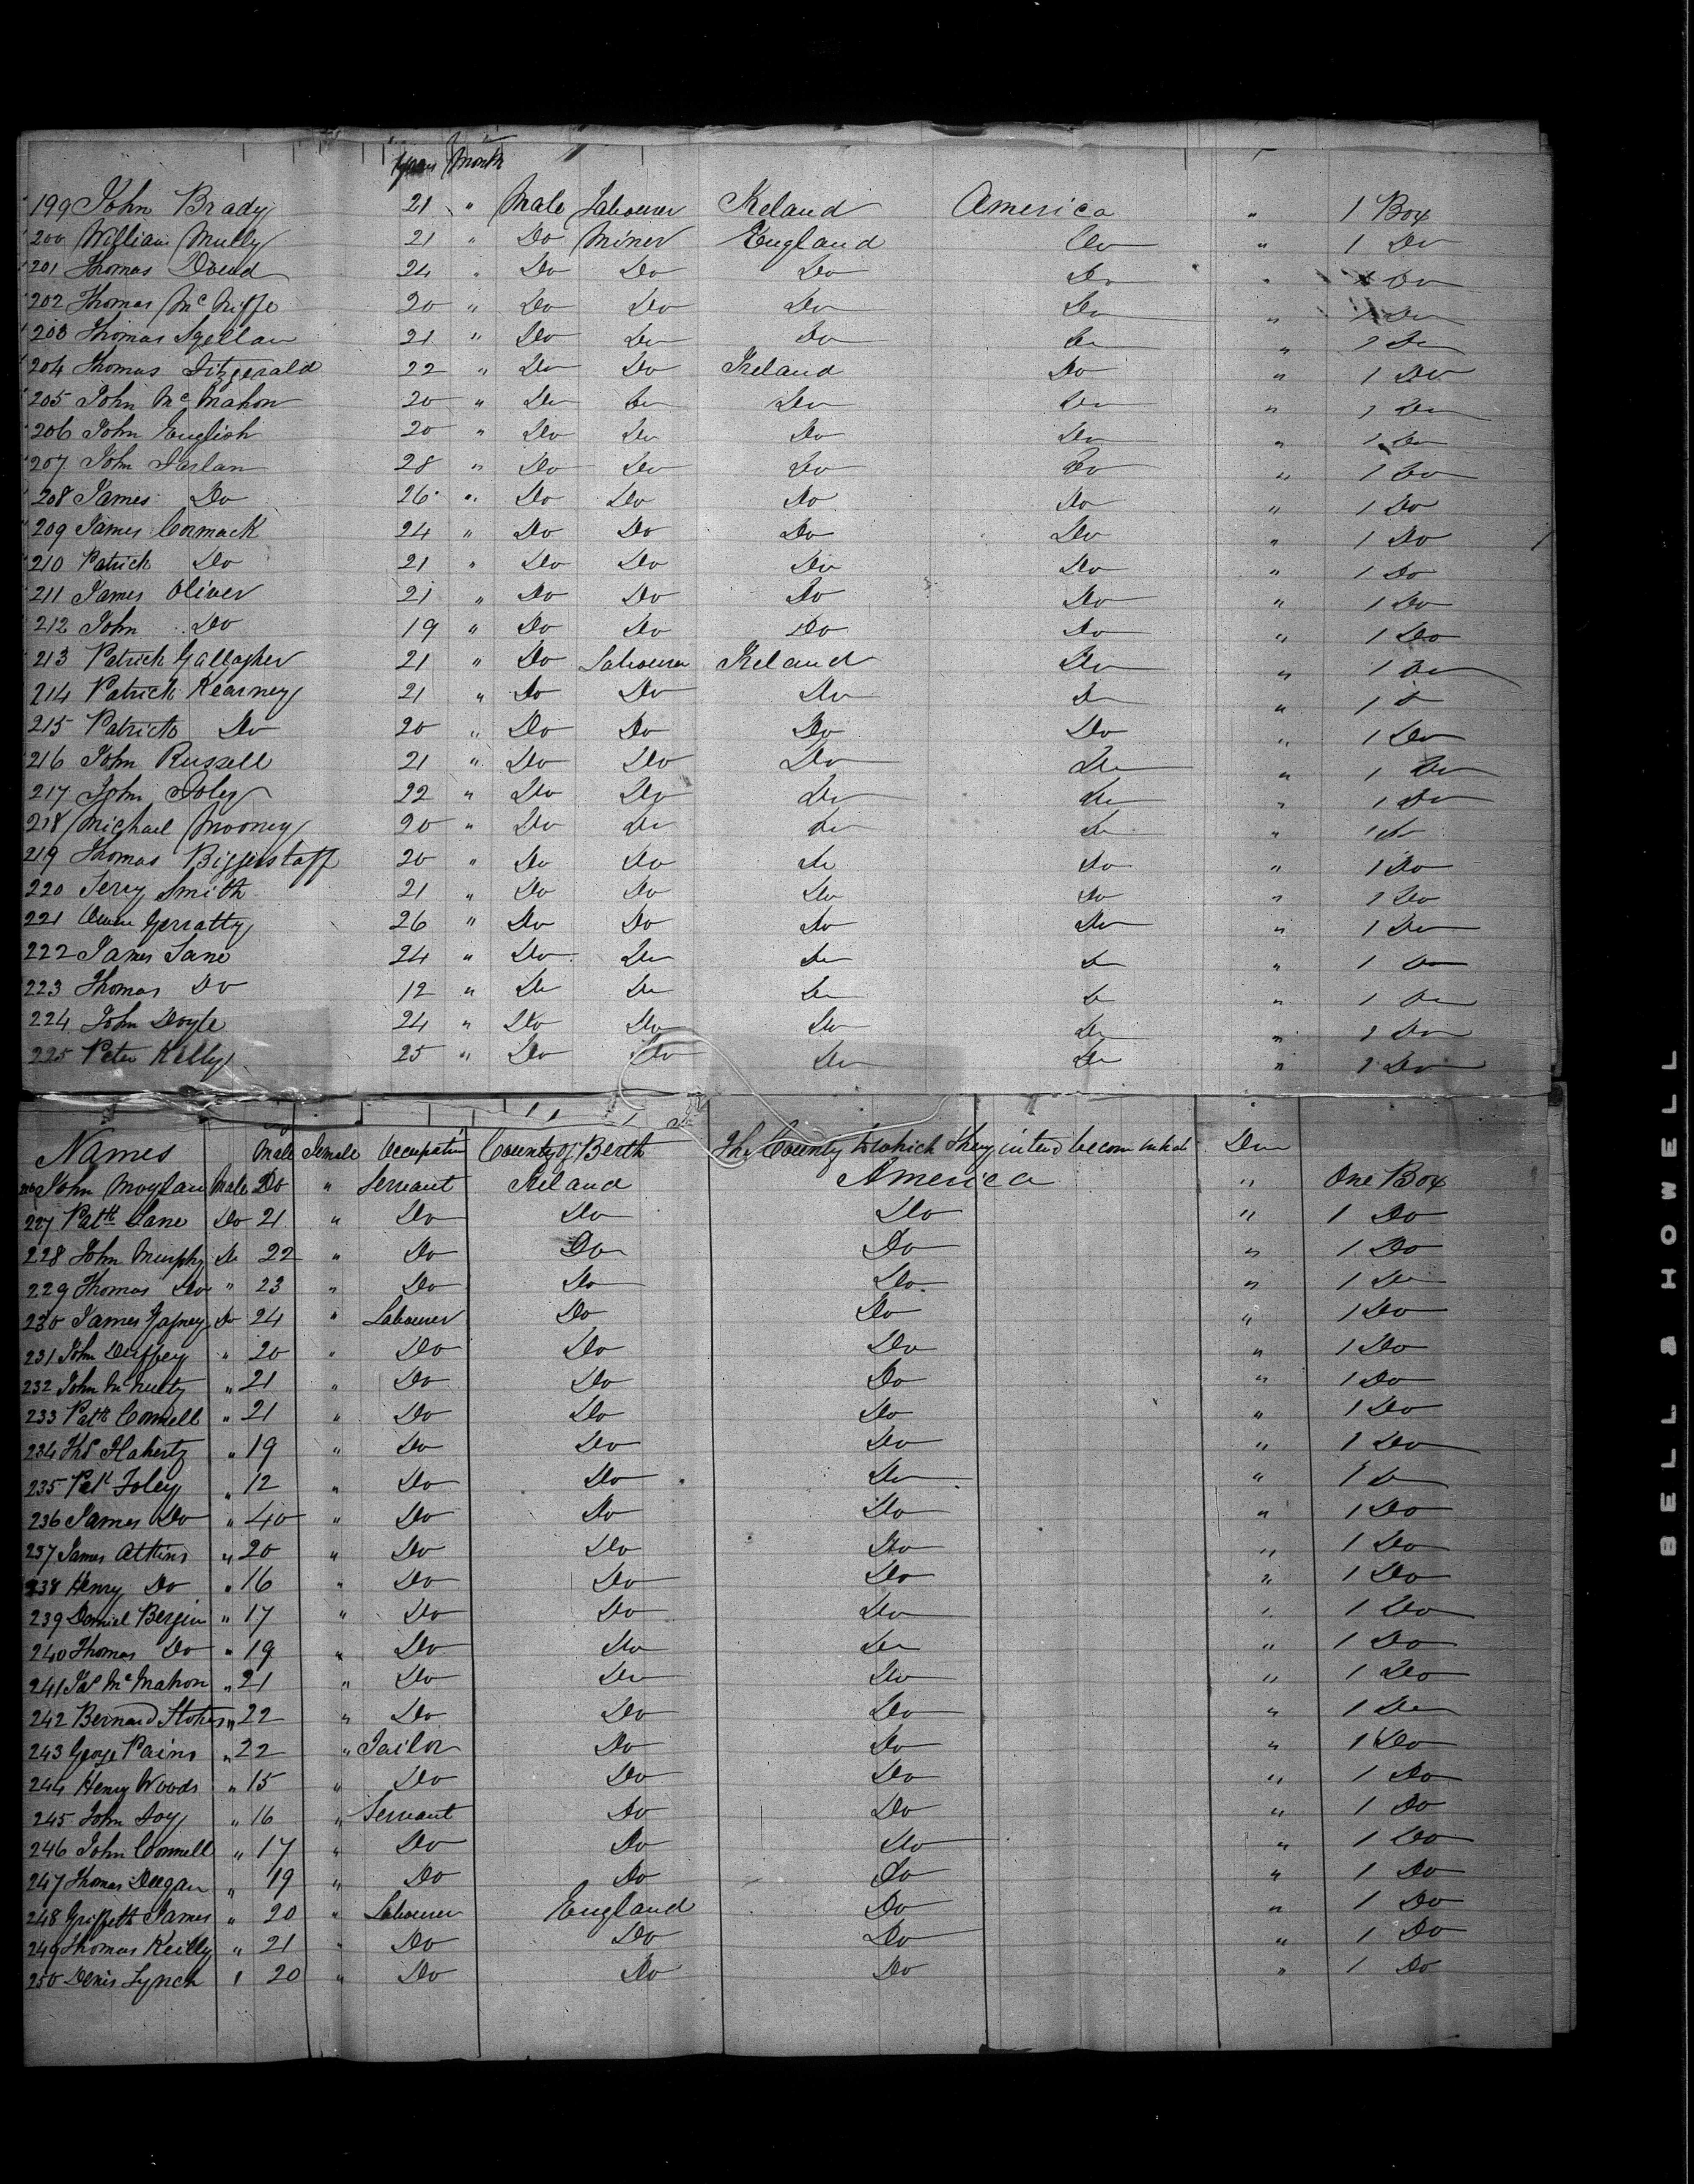 Years Month
199 John Brady 21 " Male Labourer Ireland America " 1 Box
200 William Mully 21 " Do Miner England Do " 1 Do
201 Thomas Doud 24 " Do Do Do Do " 1 Do
202 Thomas McNiffe 20 " Do Do Do Do " 1 Do
203 Thomas 21 " Do Do Do Do " 1 Do
204 Thomas Fitzgerald 22 " Do Do Ireland Do " 1 Do
205 John McMahon 20 " Do Do Do Do " 1 Do
206 John English 20 " Do Do Do Do " 1 Do
207 John 28 " Do Do Do Do " 1 Do
208 James Do 26 " Do Do Do Do " 1 Do
209 James Cormack 24 " Do Do Do Do " 1 Do
210 Patrick Do 21 " Do Do Do Do " 1 Do
211 James Oliver 21 " Do Do Do Do " 1 Do
212 John Do 19 " Do Do Do Do " 1 Do
213 Patrick Gallagher 21 " Do Labourer Ireland Do " 1 Do
214 Patrick Kearney 21 " Do Do Do Do " 1 Do
215 Patrick Do 20 " Do Do Do Do " 1 Do
216 John Russell 21 " Do Do Do Do " 1 Do
217 John Foley 22 " Do Do Do Do " 1 Do
218 Michael Mooney 20 " Do Do Do Do " 1 Do
219 Thomas Biggerstaff 20 " Do Do Do Do " 1 Do
220 Terry Smith 21 " Do Do Do Do " 1 Do
221 Owen Gerratty 26 " Do Do Do Do " 1 Do
222 James Lane 24 " Do Do Do Do " 1 Do
223 Thomas Do 12 " Do Do Do Do " 1 Do
224 John Doyle 24 " Do Do Do Do " 1 Do
225 Peter Kelly 25 " Do Do Do Do " 1 Do
Names Male Female Occupation County of Berth The County to which they intend becom inhab Do
226 John Moylan Male Do " Servant Ireland America " One Box
227 Patk Lane Do 21 " Do Do Do " 1 Do
228 John Murphy Do 22 " Do Do Do " 1 Do
229 Thomas Do " 23 " Do Do Do " 1 Do
230 James Gafney Do 24 " Labourer Do Do " 1 Do
231 John Duffey " 20 " Do Do Do " 1 Do
232 John McNulty " 21 " Do Do Do " 1 Do
233 Patk Connell " 21 " Do Do Do " 1 Do
234 Thos Flaherty " 19 " Do Do Do " 1 Do
235 Patk Foley " 12 " Do Do Do " 1 Do
236 James Do " 40 " Do Do Do " 1 Do
237 James Atkins " 20 " Do Do Do " 1 Do
238 Henry Do " 16 " Do Do Do " 1 Do
239 Daniel Bergin " 17 " Do Do Do " 1 Do
240 Thomas Do " 19 " Do Do Do " 1 Do
241 Jas McMahon " 21 " Do Do Do " 1 Do
242 Bernard Stokes " 22 " Do Do Do " 1 Do
243 George Pains " 22 " Tailor Do Do " 1 Do
244 Henry Woods " 15 " Do Do Do " 1 Do
245 John Joy " 16 " Servant Do Do " 1 Do
246 John Connell " 17 " Do Do Do " 1 Do
247 Thomas Deegan " 19 " Do Do Do " 1 Do
248 Griffeth James " 20 " Labourer England Do " 1 Do
249 Thomas Reilly " 21 " Do Do Do " 1 Do
250 Denis Lynch " 20 " Do Do Do " 1 Do
BELL & HOWELL